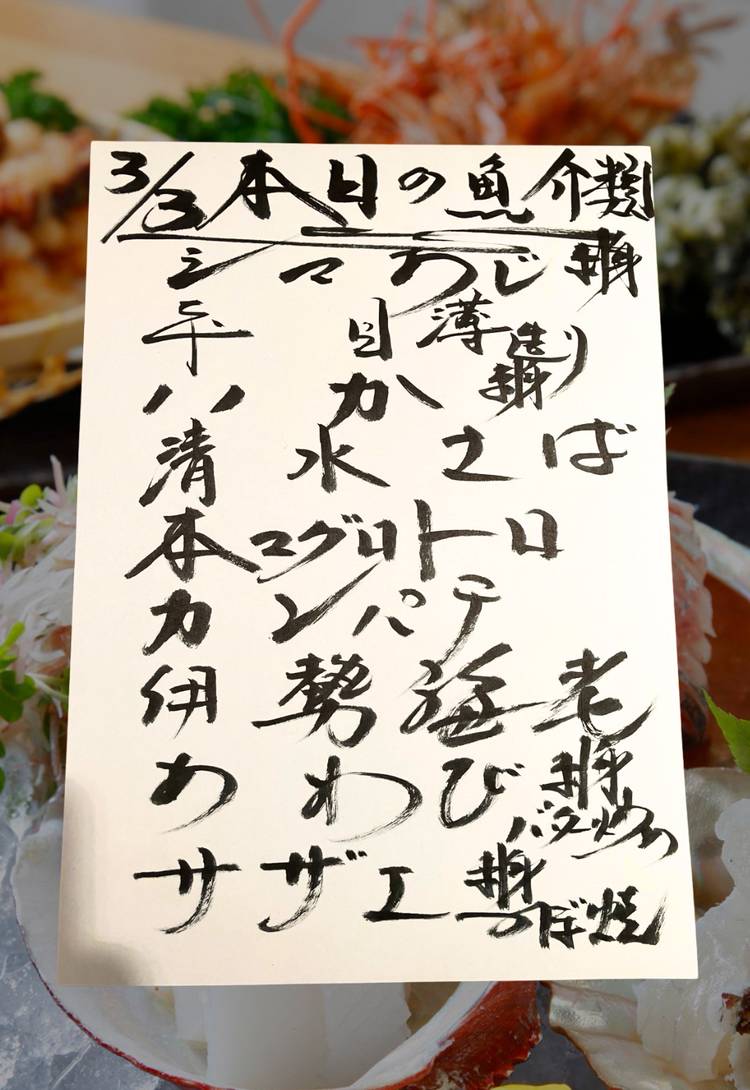 3/3 本日の魚介類
シマあじ 刺身
平目 薄造り 刺身
ハガツ
清水さば
本マグロトロ
カンパチ
伊勢海老
あわび 刺身 バター焼き
サザエ 刺身 つぼ焼